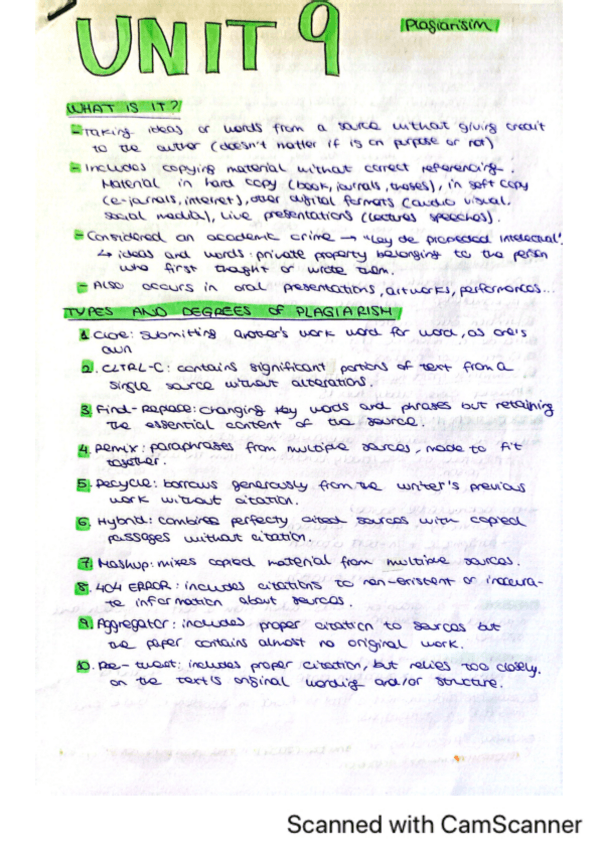 UNIT 9
Plagiarisim
WHAT IS IT?
- Taking ideas or words from a source without giving credit
to the author (doesn't matter if is on purpose or not)
- Includes copying material without correct referencing.
Material in hard copy (book, journals, theses), in soft copy
(e-journals, interet), other digital formats (audio visual.
social media), Live presentations (lectures speeches).
- Considered an academic crime → "Ley de propiedad intelectual".
↳ ideas and words: private property belonging to the person
who first thought or wrote them.
- Also occurs in oral presentations, artworks, performances...
TYPES AND DEGREES OF PLAGIARISH
1. Clone: Submitting another's work word for word, as one's
own
2. CLTRL-C: contains significant portions of text from a
single source without alterations.
3. Find-Replace: changing key words and phrases but retaining
the essential content of the source.
4. Remix: paraphrases from multiple sources, made to fit
together.
5. Recycle: borrows generously from the writer's previous
work without citation.
6. Hybrid: combines perfectly cited sources with copied
passages without citation.
7. Mashup: mixes copied material from multiple sources.
8. 404 ERROR: includes citations to non-existent or inaccura-
te information about sources.
9. Aggregator: includes proper citation to sources but
the paper contains almost no original work.
10. Re-tweet: includes proper citation, but relies too closely
on the text's original wording and/or structure.
Scanned with CamScanner